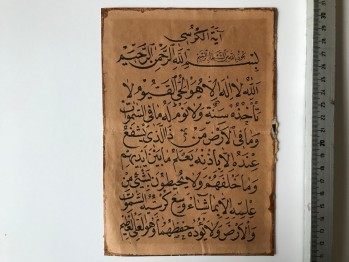 آية الكرسي
بسم الله الرحمن الرحيم
الله لا اله الا هو الحي القيوم لا
تأخذه سنة ولا نوم له ما في السموات
وما في الارض من ذا الذي يشفع
عنده الا باذنه يعلم ما بين ايديهم
وما خلفهم ولا يحيطون بشيء من
علمه الا بما شاء وسع كرسيه السموات
والارض ولا يؤده حفظهما وهو العلي العظيم